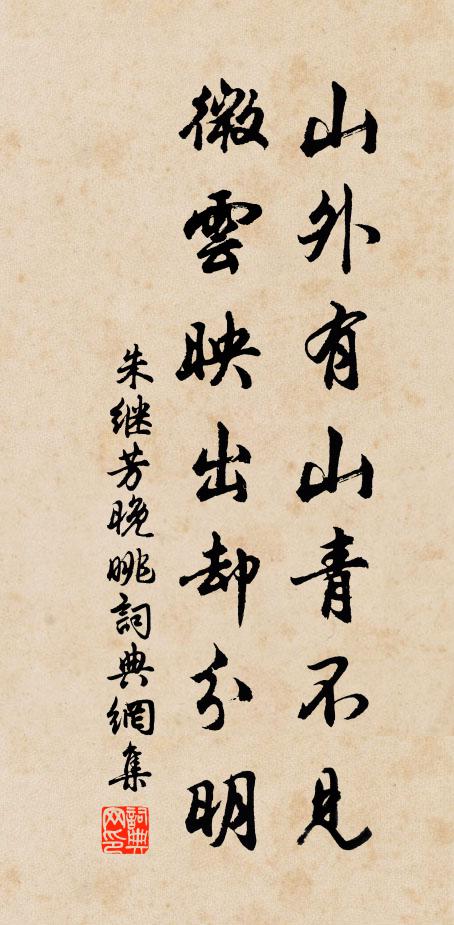 山外有山青不見
微雲映出却分明
朱继芳晚眺詞典網集
詞典网印